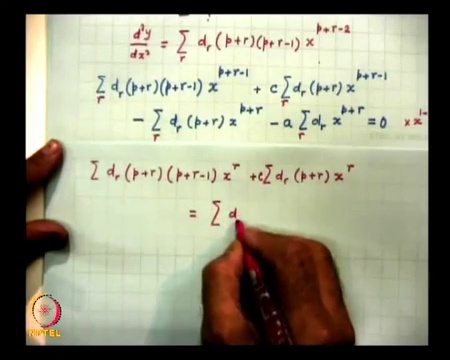 d²y/dx² = Σ_r d_r (p+r)(p+r-1) x^{p+r-2}
Σ_r d_r (p+r)(p+r-1) x^{p+r-1} + c Σ_r d_r (p+r) x^{p+r-1}
- Σ_r d_r (p+r) x^{p+r} - a Σ_r d_r x^{p+r} = 0 × x^{1-
Σ d_r (p+r) (p+r-1) x^r + c Σ d_r (p+r) x^r
= Σ d
NPTEL